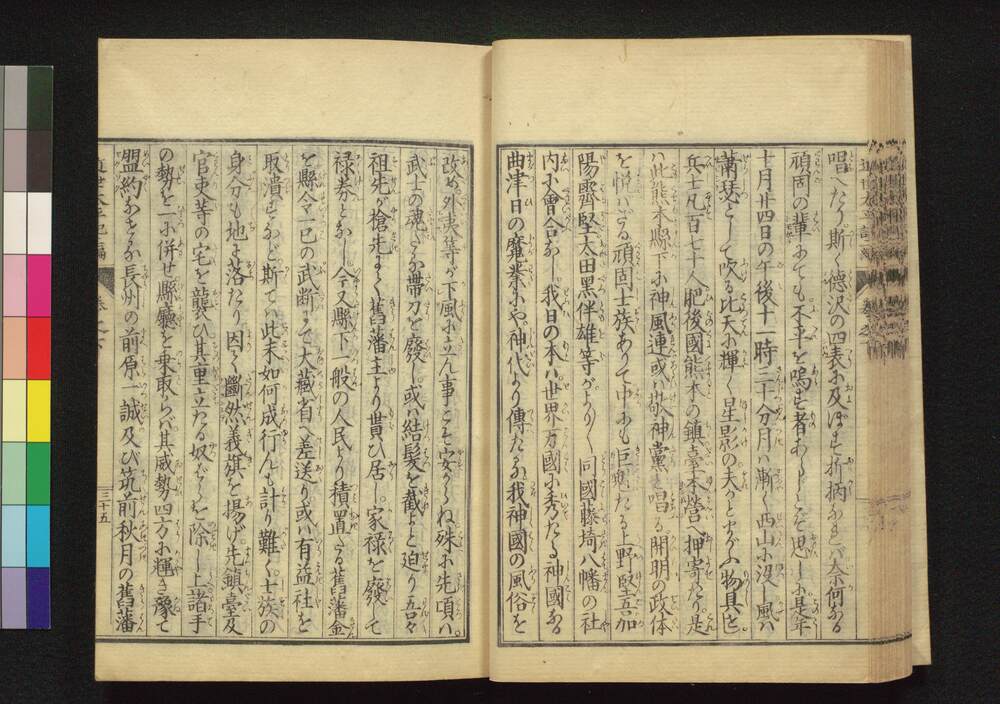 唱へたり斯く德沢の四表に及ぼす折柄なれバ奈何なる
頑固の輩にても不平を鳴す者あらじとぞ思ひしに是年
十月廿四日の午後十一時三十分月ハ漸く西山に没し風ハ
蕭瑟として吹る比天に輝く星影の夫かとまがふ物具し
兵士凡百七十人肥後國熊本の鎮臺本營へ押寄たり是
ハ此熊本縣下に神風連或ハ敬神黨と唱る開明の政体
を悦バざる頑固士族ありて中にも巨魁たる上野堅吾加
陽霽堅太田黒伴雄等がより〱同國藤埼八幡の社
内に會合なし我日の本ハ世界万國に秀たる神國なる
曲津日の魔業にや神代より傳たる我神國の風俗を
改め外夷等が下風に立ん事こそ安からね殊に先頃ハ
武士の魂たる帶刀を廢し或ハ結髪を截よと迫り吾々
祖先が槍先よく舊藩主より貰ひ居し家禄を廢て
禄券となし今又縣下一般の人民より積置たる舊藩金
を縣令一已の武断にて大藏省へ差送り或ハ有益社を
取潰すなど斯てハ此末如何成行んも計り難く士族の
身分も地に落たり因て斷然義旗を揚げ先鎮臺及
官吏等の宅を襲ひ其重立たる奴ばらを除し上諸手
の勢を一に併せ縣廳を乗取らバ其威勢四方に輝き豫て
盟約なせる長州の前原一誠及び筑前秋月の舊藩
三十五